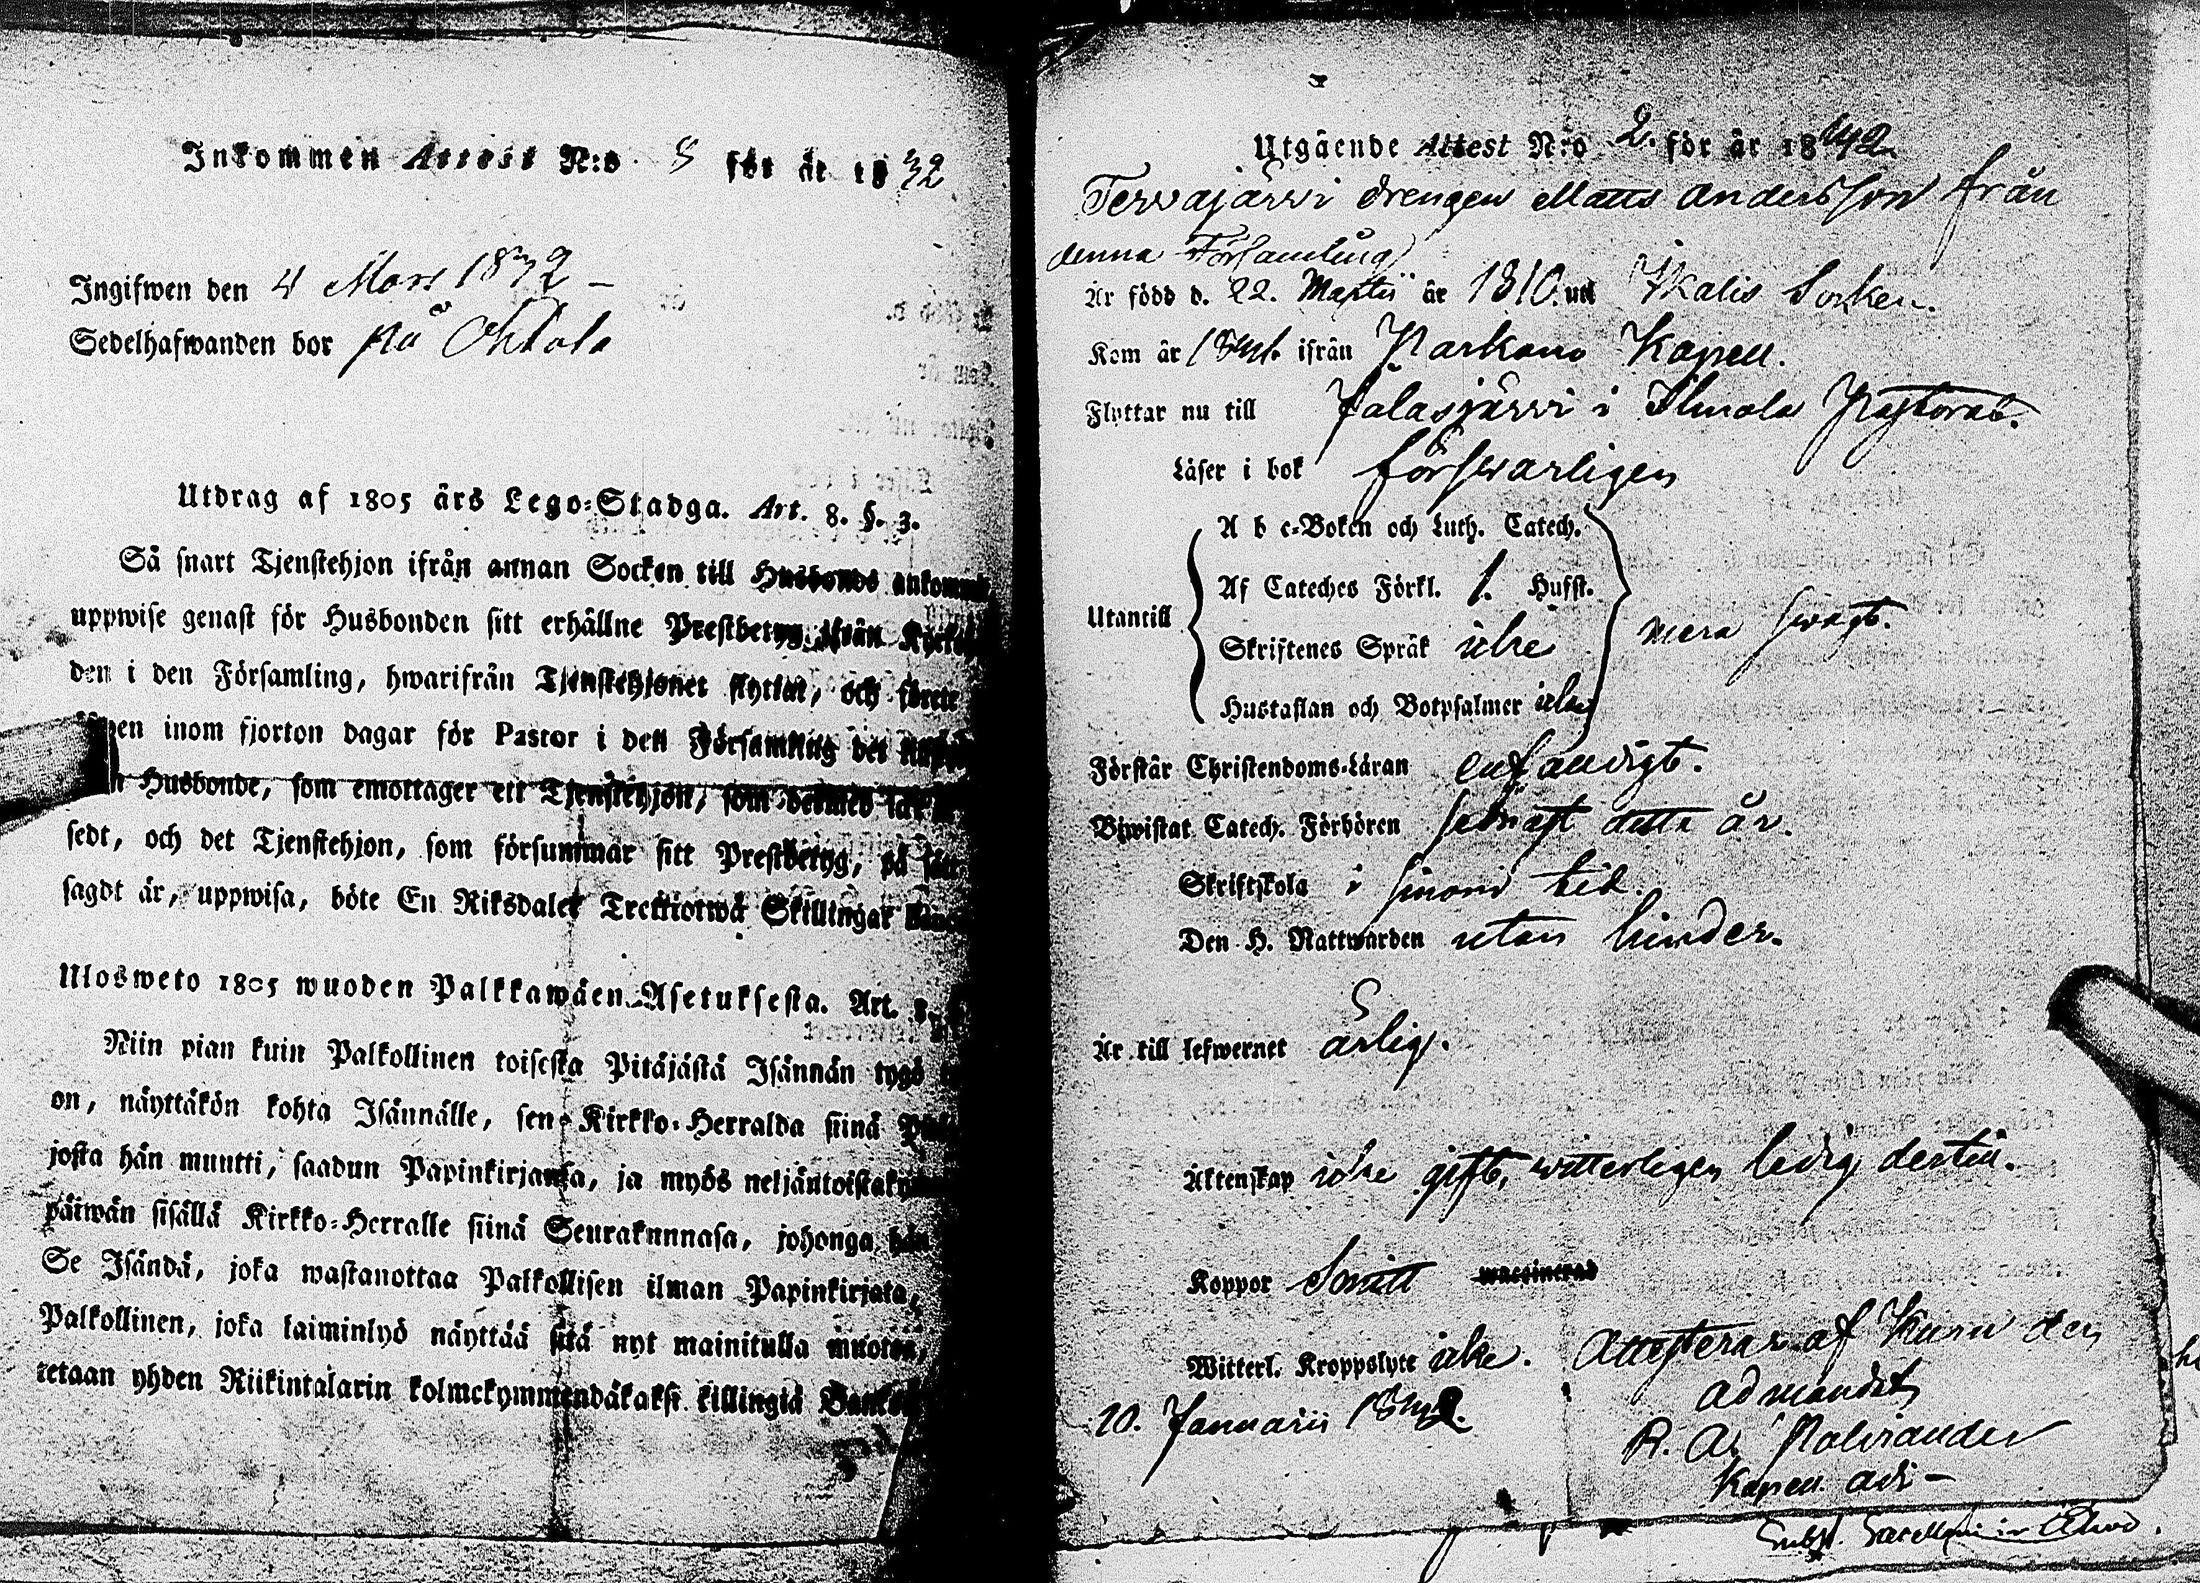 Inkommen Attest N:o 8 för år 1842
Ingifwen den 4 Mars 1842 –
Sedelhafwanden bor på
Utdrag af 1805 års Lego-Stadga. Art. 8. §. 3.
Så snart Tjenstehjon ifrån annan Socken till Husbonde
uppwise genast för Husbonden sitt erhållne Prestbetyg ifrån
den i den Församling, hwarifrån Tjenstehjonet flyttat, och
inom fjorton dagar för Pastor i den Församling det
Husbonde, som emottager ett Tjenstehjon, som
sedt, och det Tjenstehjon, som försummar sitt Prestbetyg, på sätt
sagdt är, uppwisa, böte En Riksdaler Trettiotwå Skillingar
Ulosweto 1805 wuoden Palkkawäen-Asetuksesta. Art.
Niin pian kuin Palkollinen toisesta Pitäjästä Isännän tygö
on, näyttäkön kohta Isännälle, sen Kirkko-Herralda siinä
josta hän muutti, saadun Papinkirjansa, ja myös
päiwän sisällä Kirkko-Herralle siinä Seurakunnasa, johonga hän
Se Isändä, joka wastanottaa Palkollisen ilman Papinkirjata,
Palkollinen, joka laiminlyö näyttää sitä nyt mainitulla muotoa,
tetaan yhden Riikintalarin kolmekymmendäkaksi killingiä
Utgående Attest N:o 2. för år 1842.
drengen Matts Andersson från
denna Församling
Är född d. 22. Martii år 1810. uti Ikalis Socken.
Kom år 1841 ifrån Parkano Kapell.
Flyttar nu till Jalasjärvi i Ilmola Pastorat.
Läser i bok försvarligen
A b c-Boken och Luth. Catech.
Utantill Af Cateches Förkl. 1. Hufst.
Skriftenes Språk icke
mera svagt.
Hustaflan och Botpsalmer icke
Förstår Christendoms-Läran enfaldigt.
Biwistat Catech. Förhören senast detta år.
Skriftskola i sinom tid.
Den H. Nattwarden utan hinder.
Är till lefwernet ärlig.
Äktenskap icke gift, witterligen ledig dertill.
Koppor
Witterl. Kroppslyte icke. Attesterar af Kuru den
20. Januarii 1842. ad mandat
R. A.
Kapell. adj –